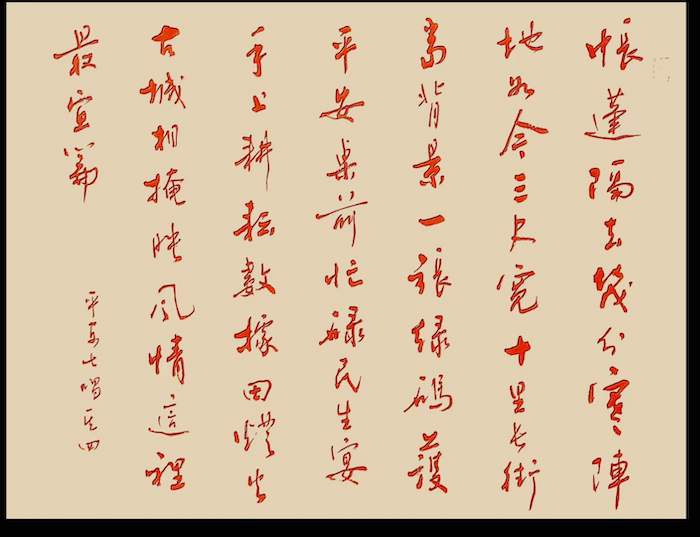 帳蓬隔去幾分寒陣
地如今三尺寬十里長街
為背景一張綠碼護
平安桌前忙碌民生宴
手上耕耘數據田燈火
古城相掩映風情這裡
最宜篇
平安七唱其四